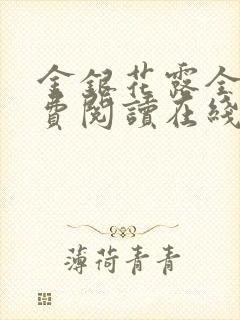 金銀花露全
費閱讀在綫
薄荷青青